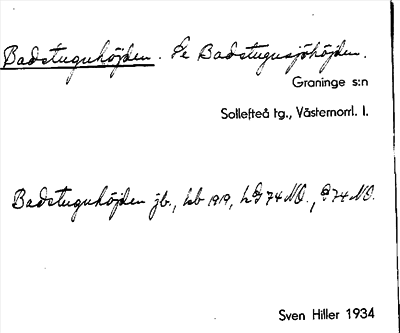 Badstuguhöjden. Se Badstugusjöhöjden.
Graninge s:n
Sollefteå tg., Västernorrl. l.
Badstuguhöjden jb., kb 1919, 74 NO., 74 NO.
Sven Hiller 1934